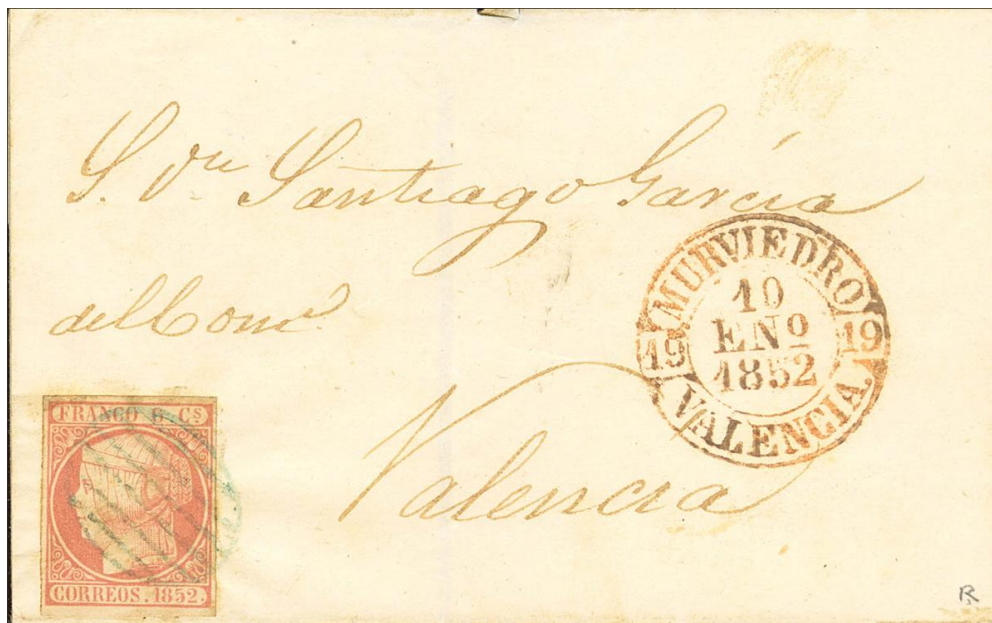 S. Dn. Santiago García
del Comº.
Valencia
MURVIEDRO
19 19
10
ENº
1852
VALENCIA
FRANCO 6 Cs
CORREOS. 1852.
R